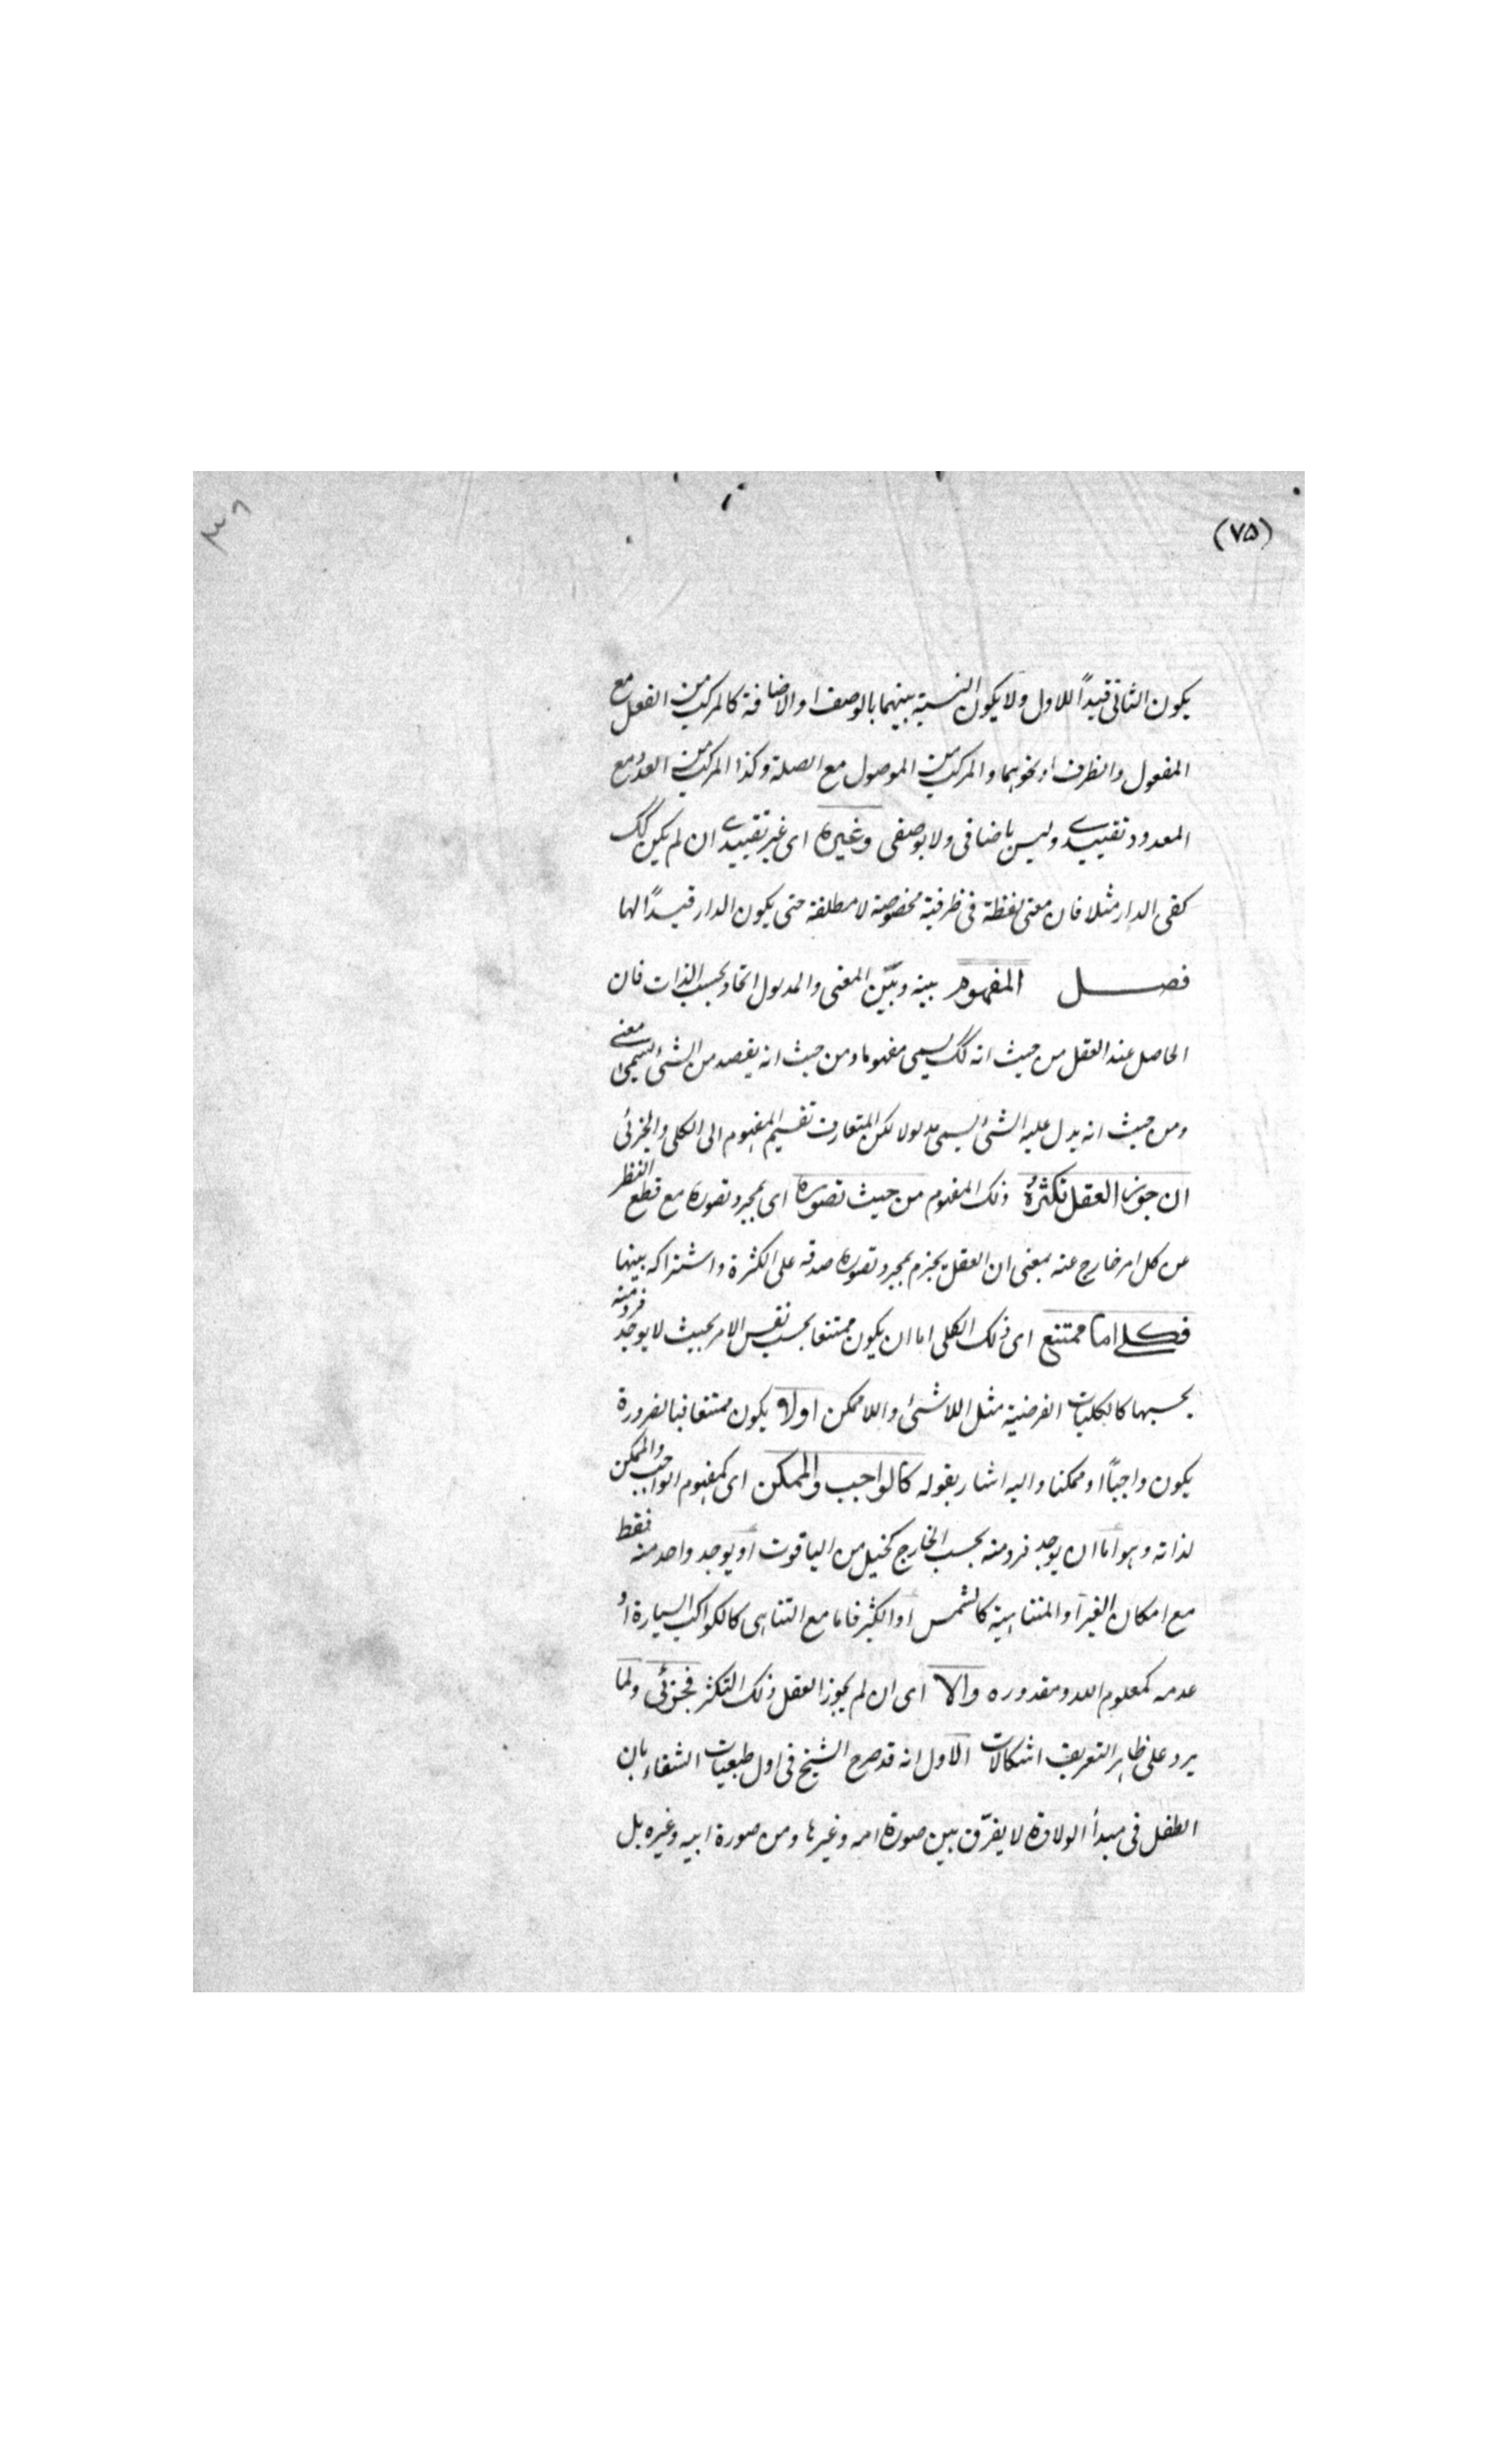 (٧٥)
يكون الثانى قيدًا للاول ولا يكون النسبة بينهما بالوصف او الاضافة كالمركب من الفعل مع
المفعول والظرف او نحوهما والمركب من الموصول مع الصلة وكذا المركب من العدد مع
المعدود تقييدے وليس باضافى ولا بوصفى وغيره اى غير تقييدے ان لم يكن كك
كفى الدار مثلا فان معنى لفظة فى ظرفية مخصوصة لا مطلقة حتى يكون الدار قيدًا لها
فصل المفهوم بينه وبين المعنى والمدلول اتحاد بحسب الذات فان
الحاصل عند العقل من حيث انه كك يسمى مفهوما ومن حيث انه يقصد من الشئ يسمى معنے
ومن حيث انه يدل عليه الشئ يسمى مدلولا لكن المتعارف تقسيم المفهوم الى الكلى والجزئى
ان جوز العقل تكثره ذلك المفهوم من حيث تصوره اى بمجرد تصوره مع قطع النظر
عن كل امر خارج عنه بمعنى ان العقل يجزم بمجرد تصوره صدقه على الكثرة واشتراكه بينها
فكلے اما ممتنع اى ذلك الكلى اما ان يكون ممتنعا بحسب نفس الامر بحيث لا يوجد فرد منه
بحسبها كالكليات الفرضية مثل اللاشئ واللاممكن اولا يكون ممتنعا فبالضرورة
يكون واجبًا او ممكنا واليه اشار بقوله كالواجب والممكن اى كمفهوم الواجب والممكن
لذاته وهو اما ان يوجد فرد منه بحسب الخارج كخيل من الياقوت او يوجد واحد منه فقط
مع امكان الغير او المتناهية كالشمس او الكثير فاما مع التناهى كالكواكب السيارة او
عدمه كمعلوم الله ومقدوره والا اى ان لم يجوز العقل ذلك التكثر فجزئى ولما
يرد على ظاهر التعريف اشكالات الاول انه قد صرح الشيخ فى اول طبعيات الشفاء بان
الطفل فى مبدأ الولادة لا يفرّق بين صورة امه وغيرها ومن صورة ابيه وغيره بل